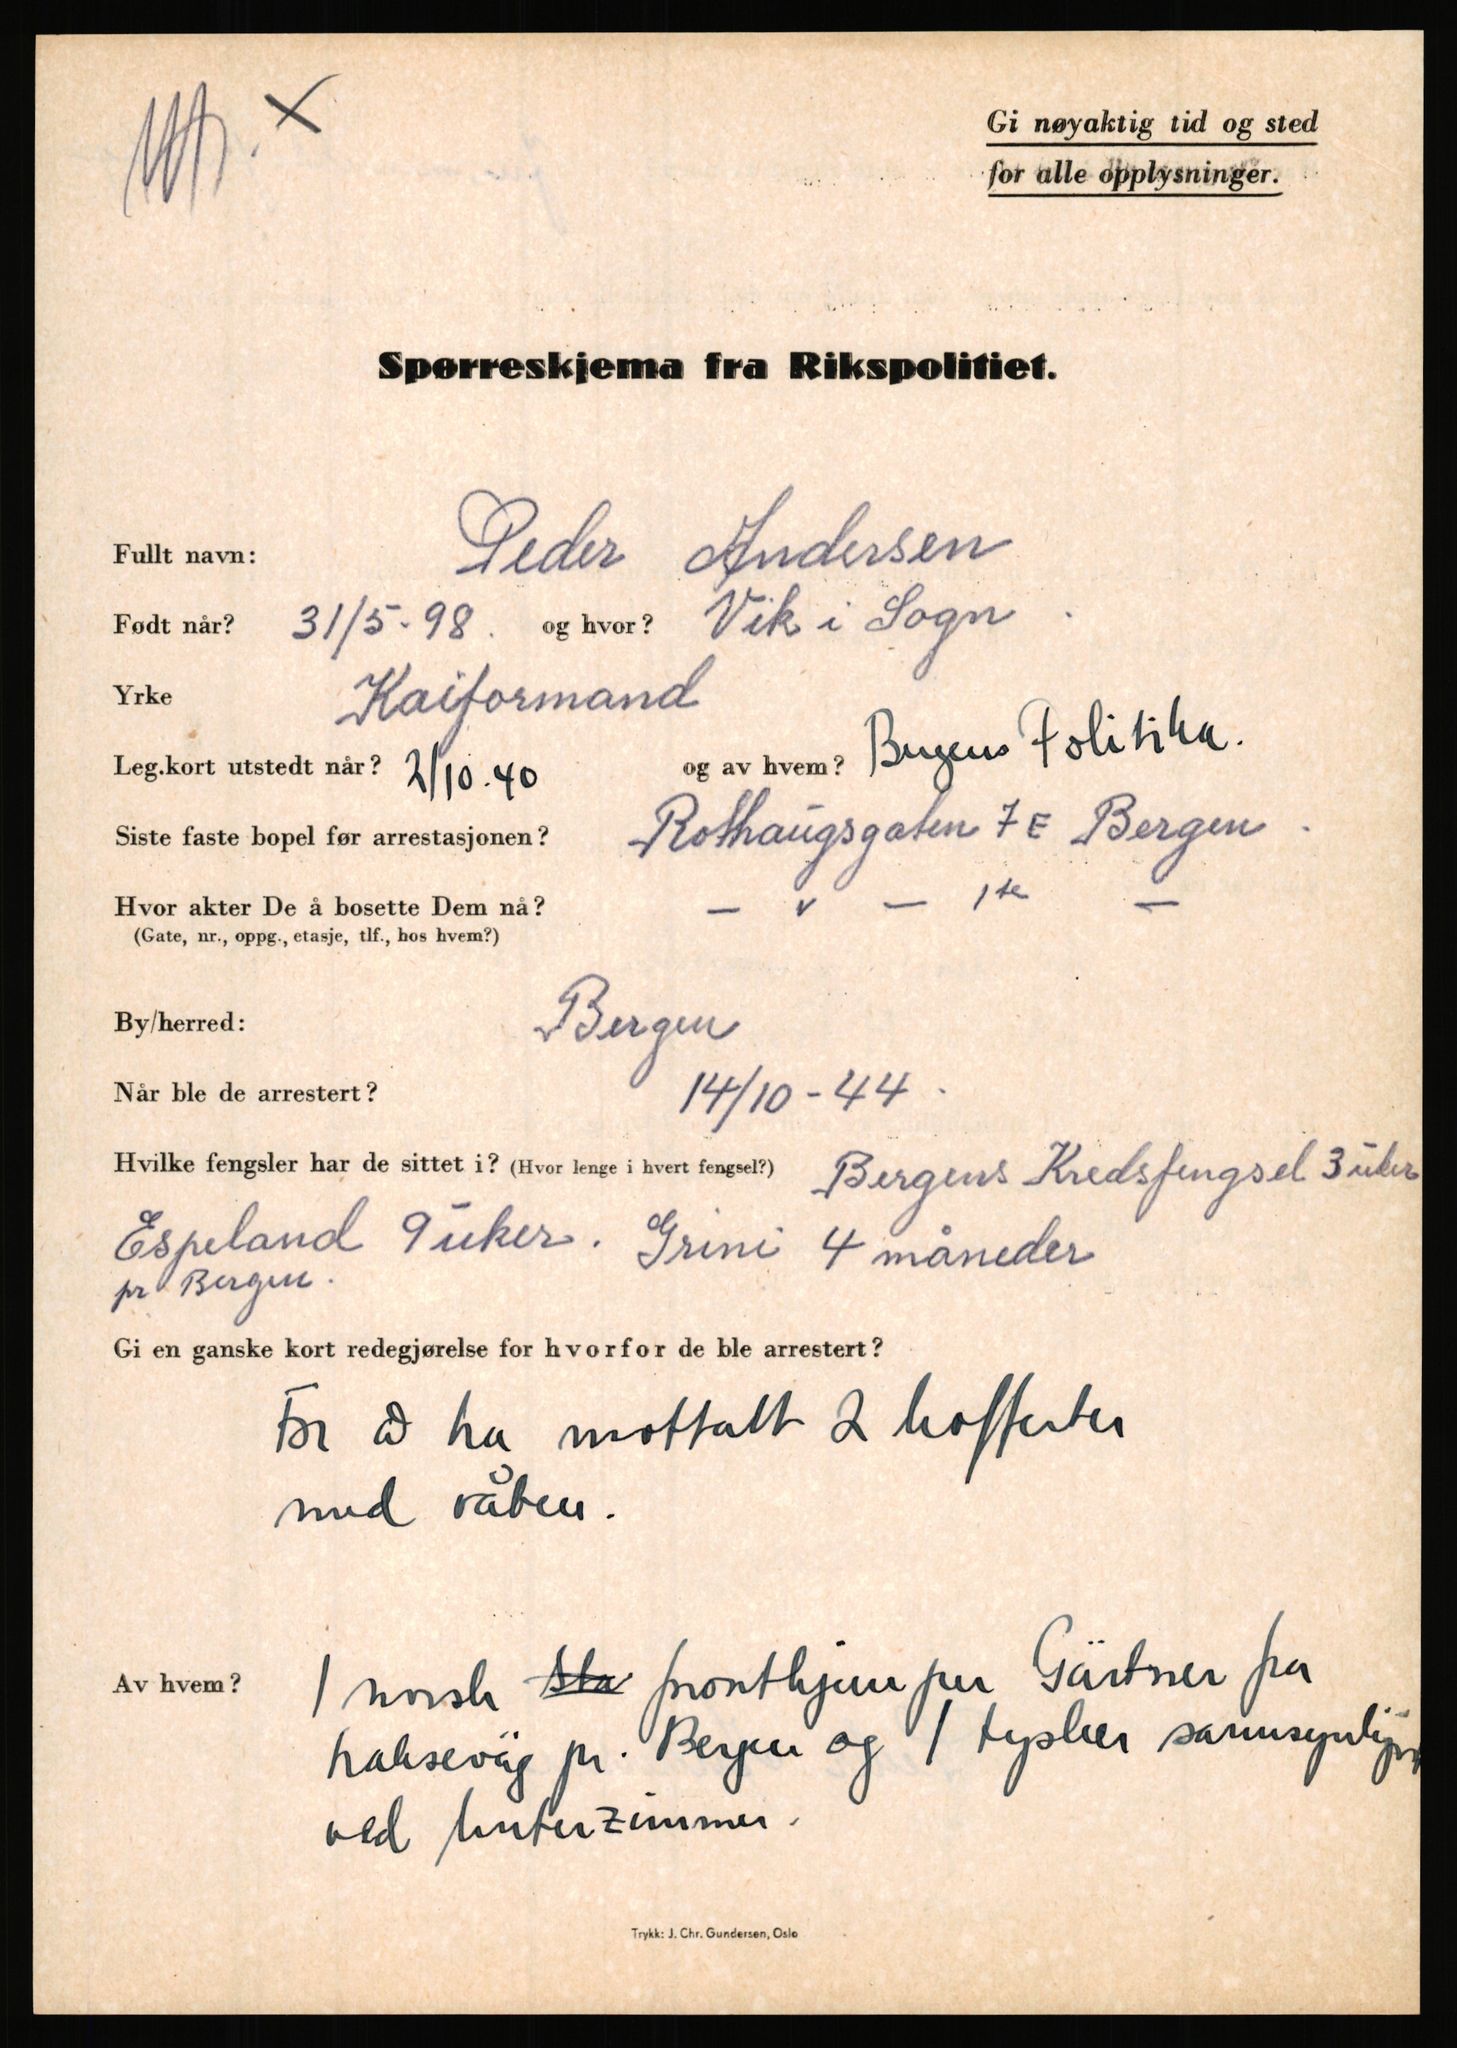 Gi nøyaktig tid og sted
for alle opplysninger.
Spørreskjema fra Rikspolitiet.
Fullt navn: Peder Andersen
Født når? 31/5-98. og hvor? Vik i Sogn
Yrke Kaiformand
Leg.kort utstedt når? 2/10.40 og av hvem? Bergens Politika.
Siste faste bopel før arrestasjonen? Rothaugsgaten 7E Bergen.
Hvor akter De å bosette Dem nå? — v — 1ste —
(Gate, nr., oppg., etasje, tlf., hos hvem?)
By/herred: Bergen
Når ble de arrestert? 14/10-44.
Hvilke fengsler har de sittet i? (Hvor lenge i hvert fengsel?) Bergens Kredsfengsel 3 uker
Espeland 9 uker. Grini 4 måneder
pr Bergen.
Gi en ganske kort redegjørelse for hvorfor de ble arrestert?
For å ha mottatt 2 kofferter
med våben.
Av hvem? 1 norsk sta frontkjemper Gärtner fra
pr. Bergen og 1 tysker sannsynligvis
ved
Trykk: J. Chr. Gundersen, Oslo